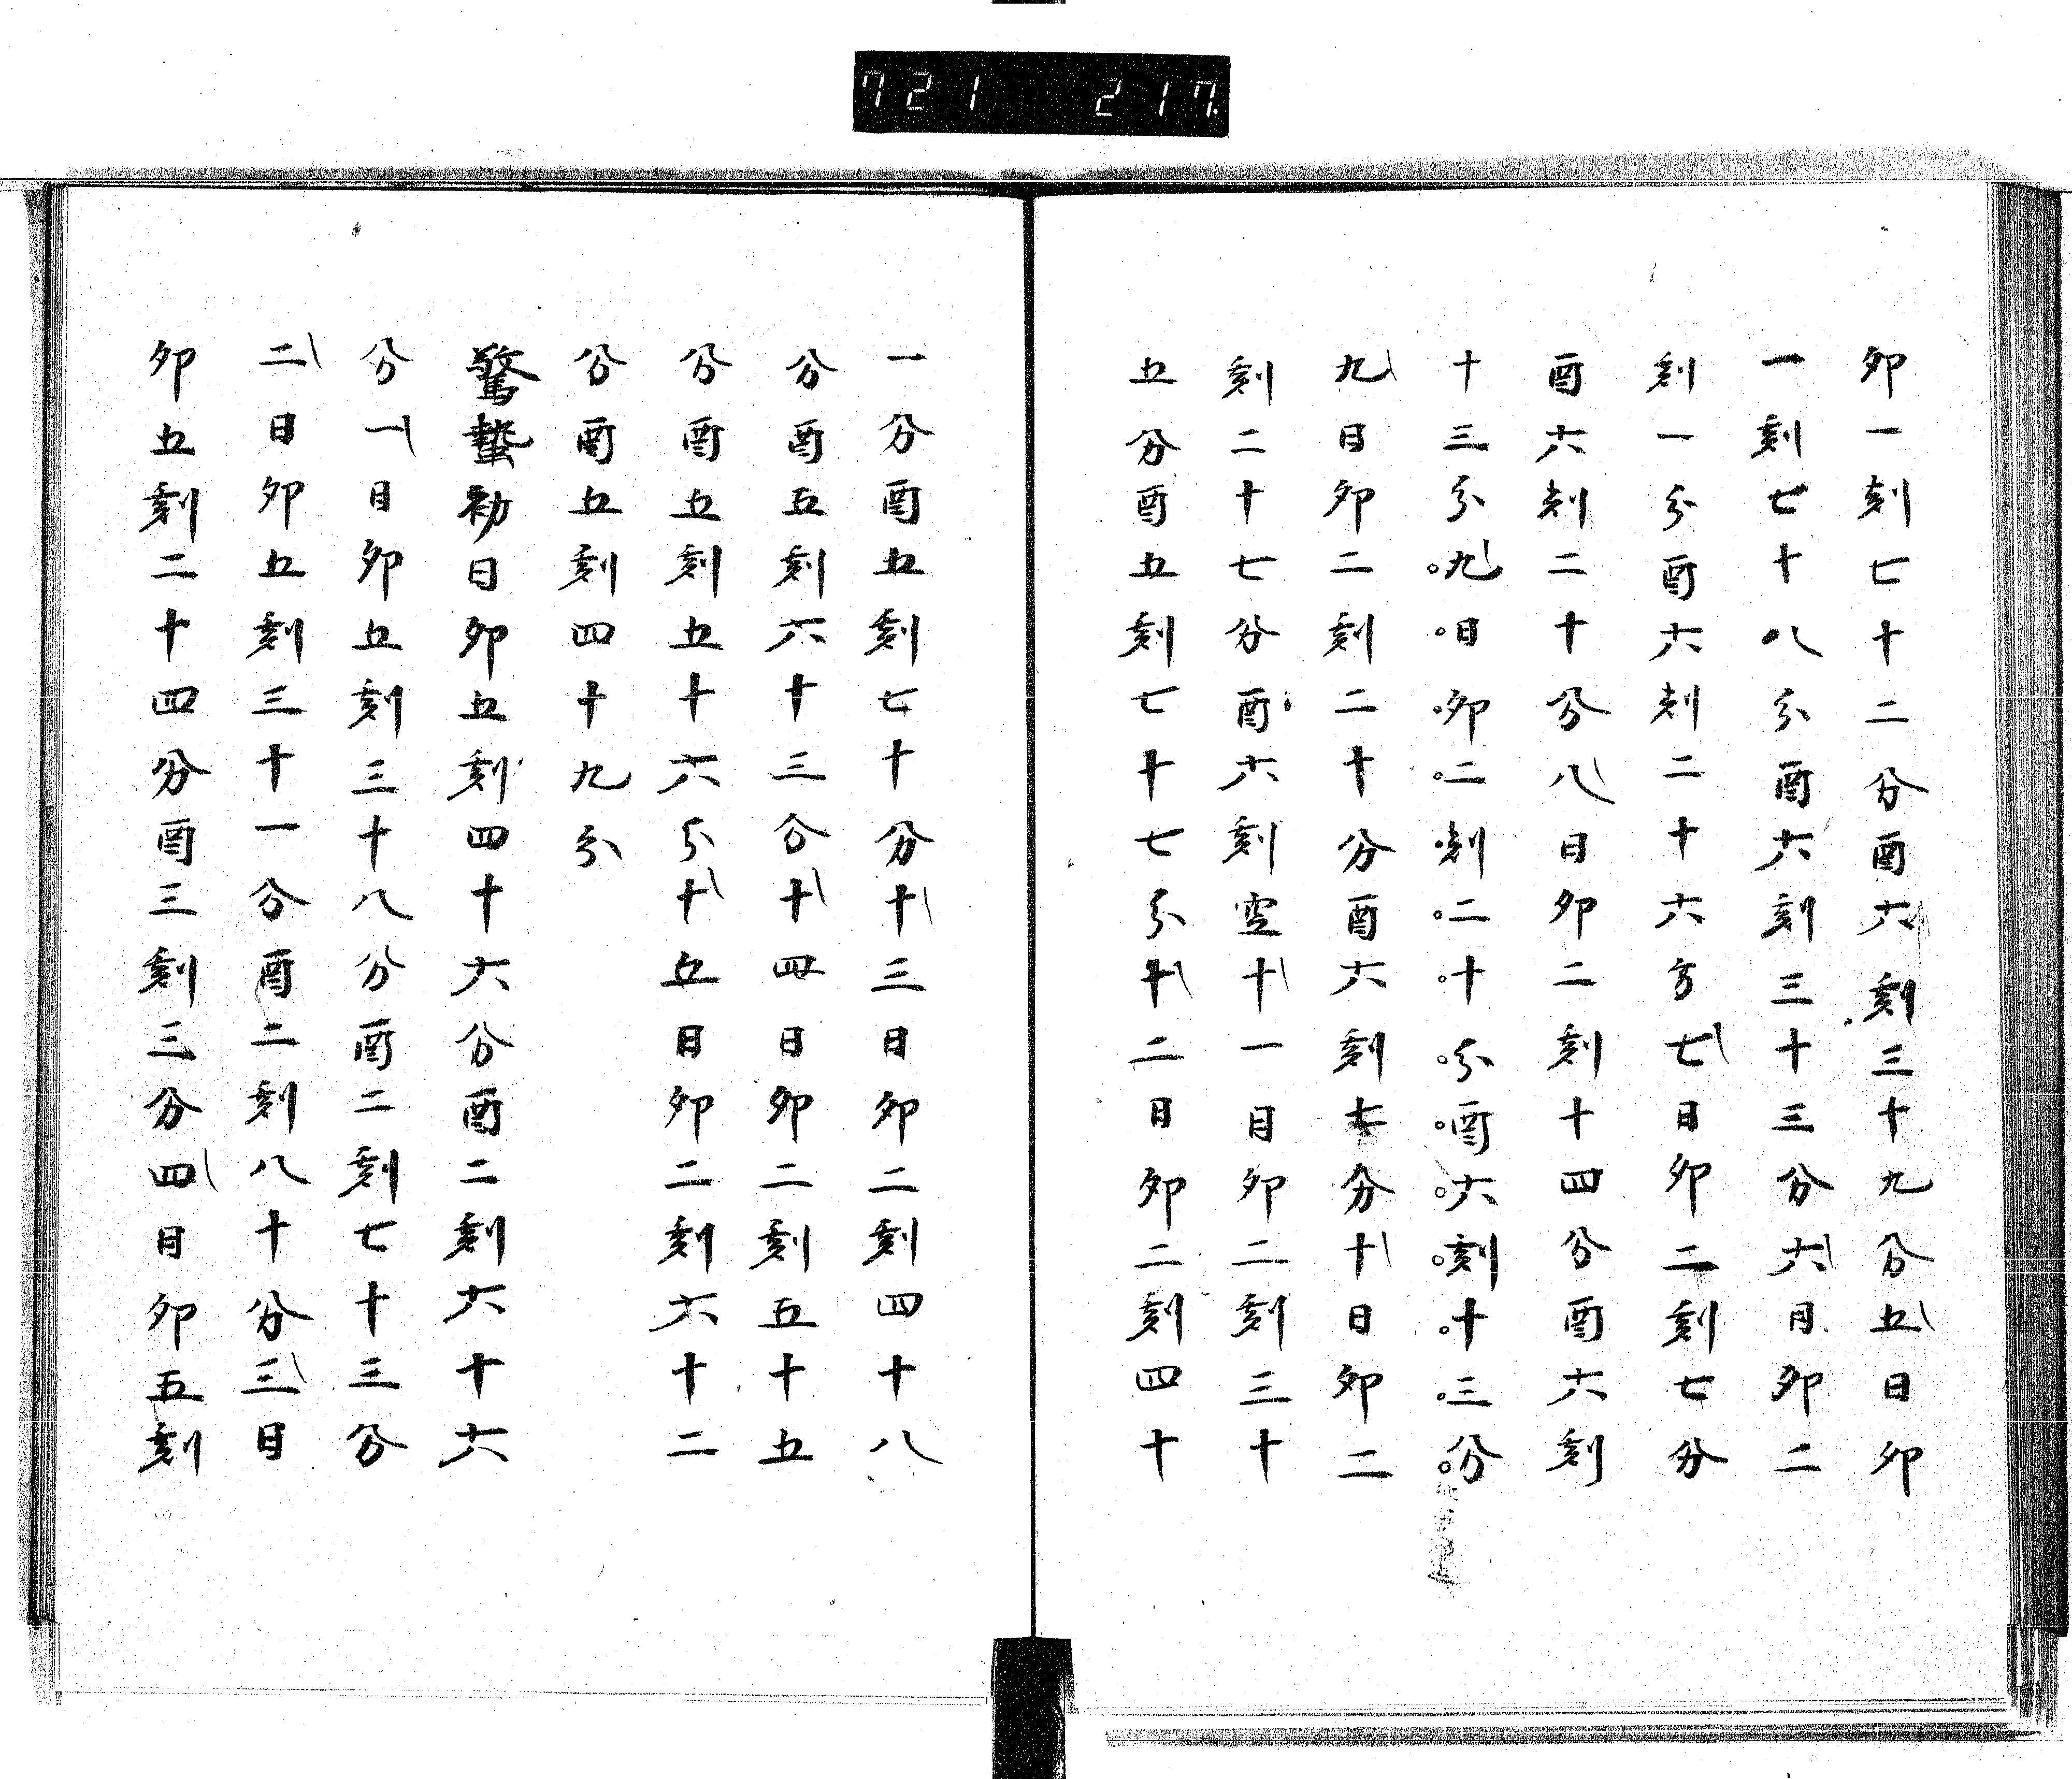 721 217
卯一刻七十二分酉六刻三十九分五日卯
一刻七十八分酉六刻三十三分六日卯二
刻一分酉六刻二十六方七日卯二刻七分
酉六刻二十分八日卯二刻十四分酉六刻
十三分九日卯二刻二十分酉六刻十三分
九日卯二刻二十分酉六刻七分十日卯二
刻二十七分酉六刻空十一日卯二刻三十
五分酉五刻七十七分十二日卯二刻四十
一分酉五刻七十分十三日卯二刻四十八
分酉五刻六十三分十四日卯二刻五十五
分酉五刻五十六分十五日卯二刻六十二
分酉五刻四十九分
驚蟄初日卯五刻四十六分酉二刻六十六
分一日卯五刻三十八分酉二刻七十三分
二日卯五刻三十一分酉二刻八十分三日
卯五刻二十四分酉三刻三分四日卯五刻